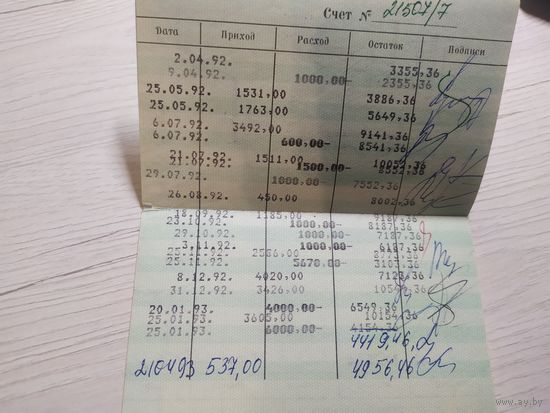 Счет № 21507/7
Дата Приход Расход Остаток Подписи
2.04.92. 3355,36
9.04.92. 1000,00- 2355,36
25.05.92. 1531,00 3886,36
25.05.92. 1763,00 5649,36
6.07.92. 3492,00 9141,36
6.07.92. 600,00- 8541,36
21.07.92. 1511,00 10052,36
21.07.92. 1500,00- 8552,36
29.07.92. 1000,00- 7552,36
26.08.92. 450,00 8002,36
18.09.92. 1185,00 9187,36
23.10.92. 1000,00- 8187,36
29.10.92. 1000,00- 7187,36
3.11.92. 1000,00- 6187,36
25.11.92. 2586,00 8773,36
25.11.92. 5670,00- 3103,36
8.12.92. 4020,00 7123,36
31.12.92. 3426,00 10549,36
20.01.93. 4000,00- 6549,36
25.01.93. 3605,00 10154,36
25.01.93. 6000,00- 4154,36
4419,46
210493 537,00 4956,46
www.ay.by